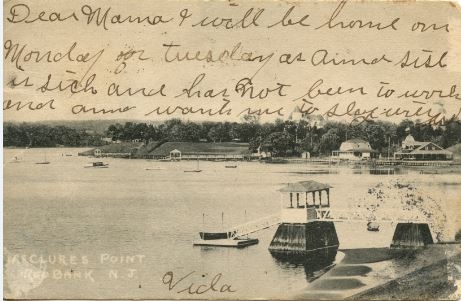 Dear Mama I will be home on
Monday or tuesday as Anna still
is sick and has not been to work
and anna want me to stay with
McCLURES POINT
RED BANK N.J.
Vida